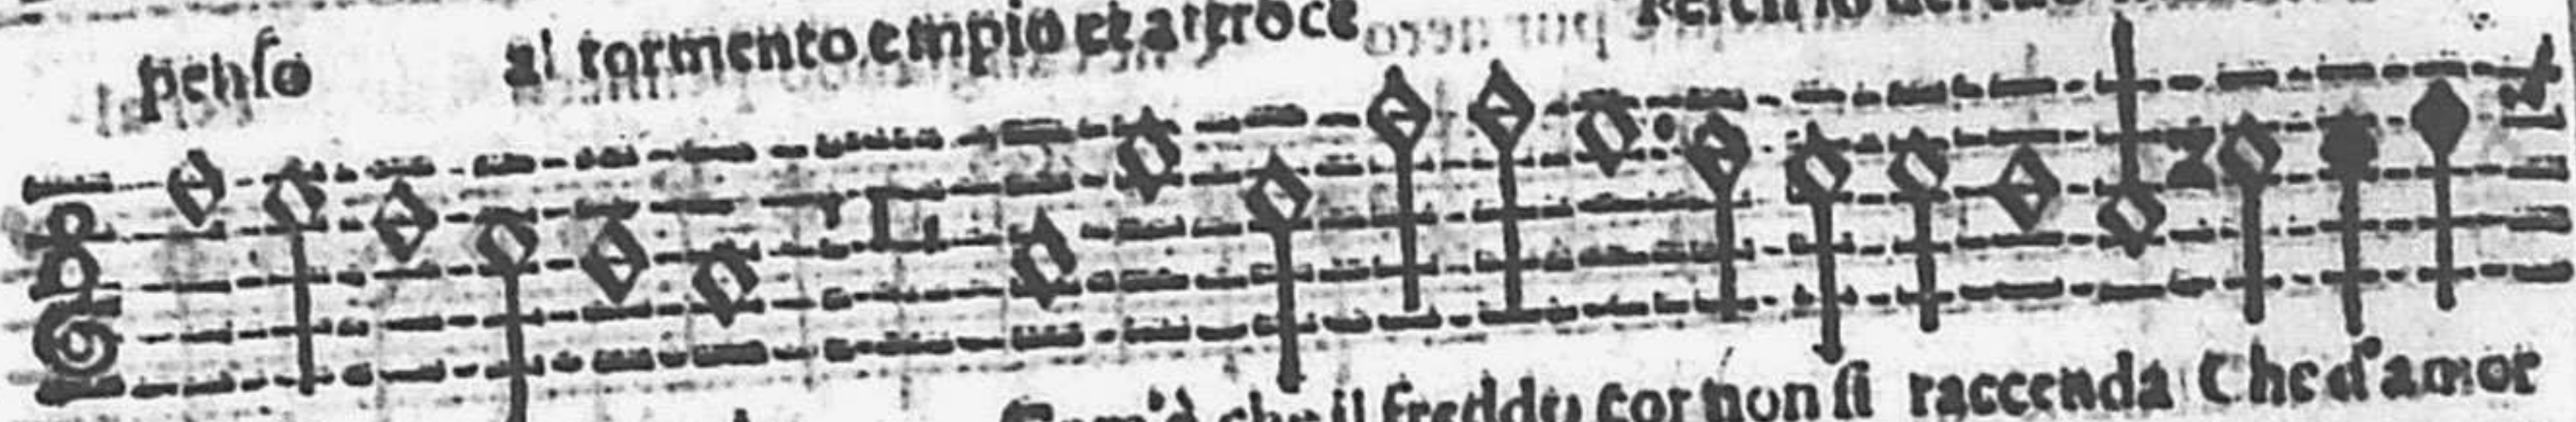 penso al tormento empio et atroce
che il freddo cor non si raccenda Che d'amor